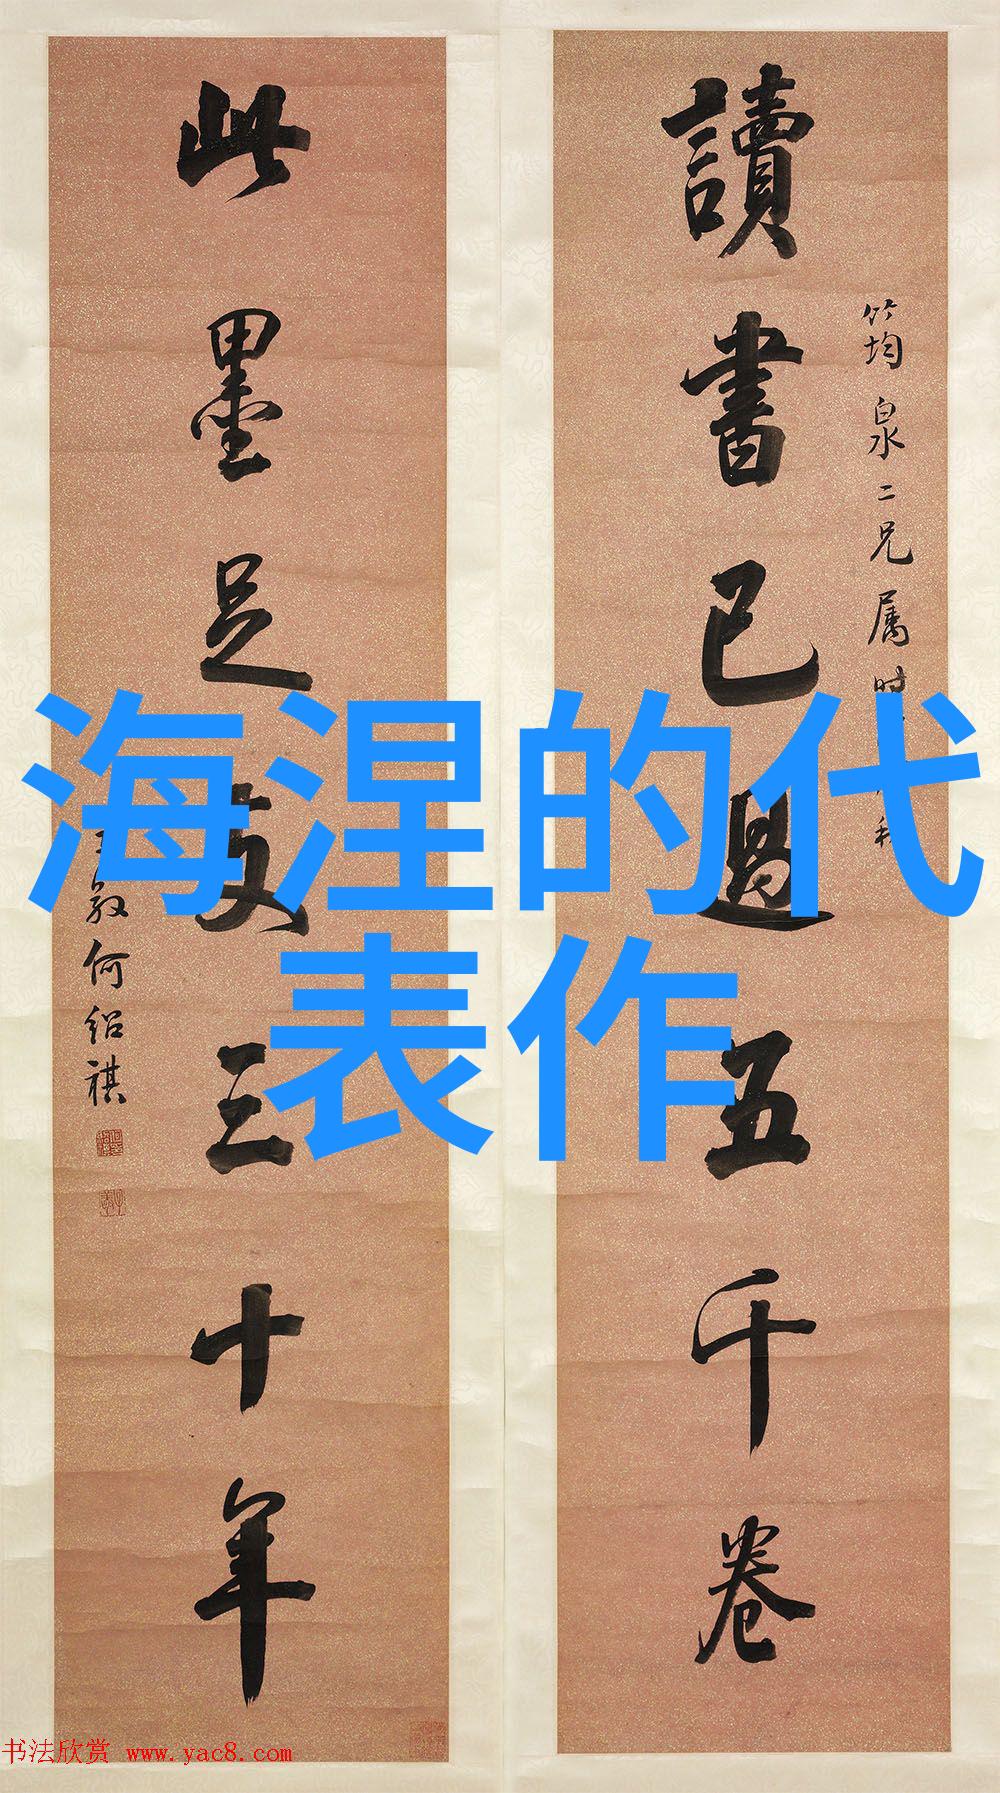 讀書已過五千卷
筠均泉二兄属時
此墨足支三十年
敎何绍祺
海涅的代
表作
书法欣赏 www.yac8.com